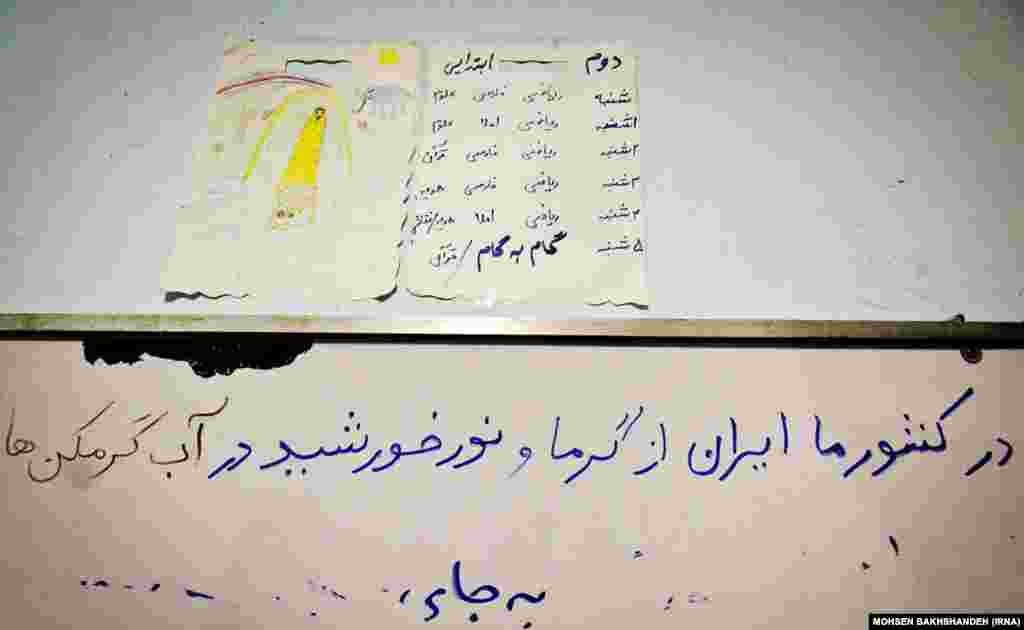 دوم ابتدایی
شنبه ریاضی فارسی علوم
۱شنبه ریاضی املا علوم
۲شنبه ریاضی فارسی قرآن
۳شنبه ریاضی فارسی هدیه
۴شنبه ریاضی املا
۵ شنبه گام به گام / قرآن
در کشور ما ایران از گرما و نور خورشید در آب گرمکن ها
به جاء،
MOHSEN BAKHSHANDEH (IRNA)